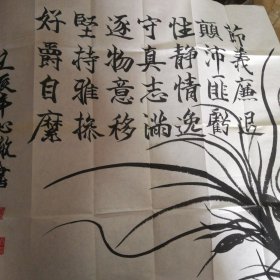 節義廉退
顛沛匪虧
性靜情逸
守真志滿
逐物意移
堅持雅操
好爵自縻